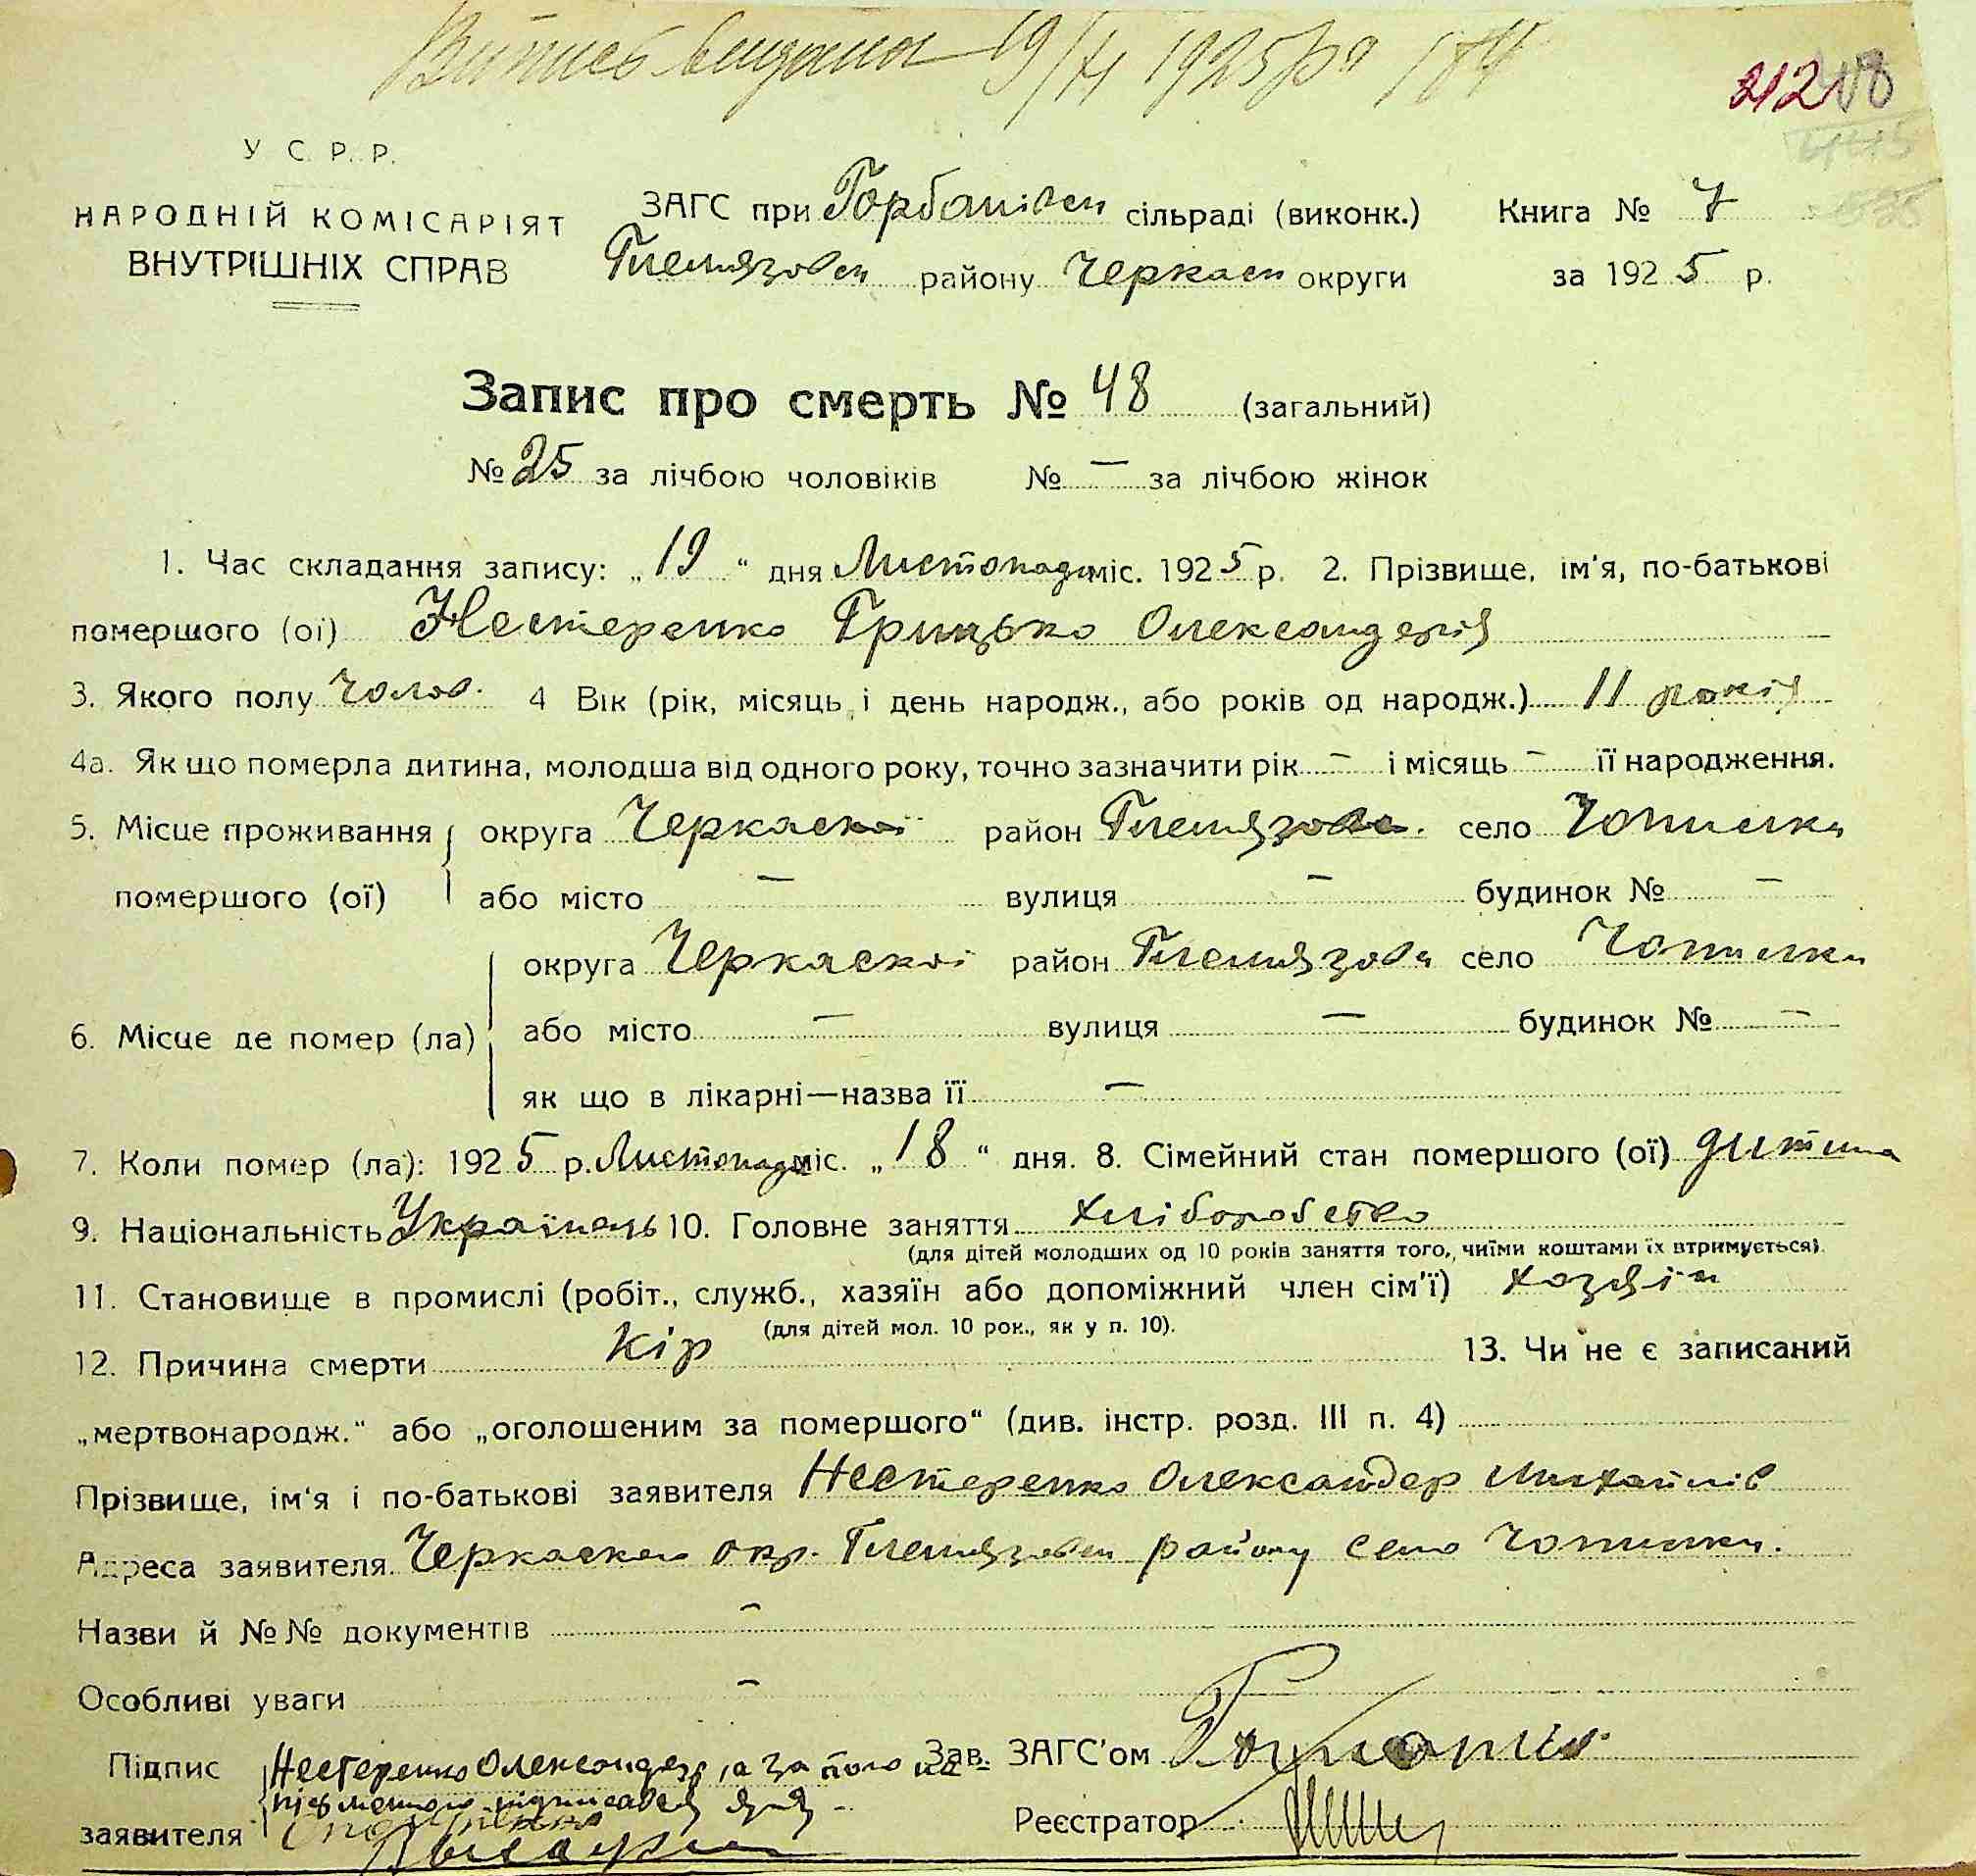 Витпись видана 19/XI 1925 р. 184
212
У С. Р. Р.
НАРОДНІЙ КОМІСАРІЯТ
ВНУТРІШНІХ СПРАВ
ЗАГС при Горбанівск сільраді (виконк.) Книга № 7
Гпемязовск району Черкаск округи за 1925 р.
Запис про смерть № 48 (загальний)
№ 25 за лічбою чоловіків № — за лічбою жінок
1. Час складання запису: „19“ дня Листопада міс. 1925 р. 2. Прізвище, ім'я, по-батькові
помершого (ої) Нестеренко Грицько Олександерів
3. Якого полу Чолов. 4 Вік (рік, місяць, і день народж., або років од народж.) 11 років
4а. Як що померла дитина, молодша від одного року, точно зазначити рік — і місяць — її народження.
5. Місце проживання округа Черкаской район Гпемязовс. село Чопилки
помершого (ої) або місто — вулиця — будинок № —
округа Черкаскої район Гпемязовс село Чопилки
6. Місце де помер (ла) або місто — вулиця — будинок № —
як що в лікарні—назва її —
7. Коли помер (ла): 1925 р. Листопада міс. „18“ дня. 8. Сімейний стан помершого (ої) дитина
9. Національність Українець 10. Головне заняття хліборобство
(для дітей молодших од 10 років заняття того, чиїми коштами їх втримується).
11. Становище в промислі (робіт., служб., хазяїн або допоміжний член сім'ї) хозяін
(для дітей мол. 10 рок., як у п. 10).
12. Причина смерти Кір 13. Чи не є записаний
„мертвонародж.“ або „оголошеним за помершого“ (див. інстр. розд. III п. 4)
Прізвище, ім'я і по-батькові заявителя Нестеренко Олександер Михайлів
Адреса заявителя Черкаскої окр. Гпемязовск району село Чопилки.
Назви й №№ документів —
Особливі уваги —
Підпис Нестеренко Олександер, а за його не Зав. ЗАГС'ом
письменного підписався
заявителя Реєстратор